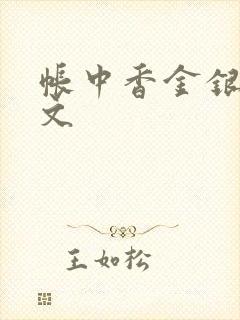 帐中香金银
文
王如松